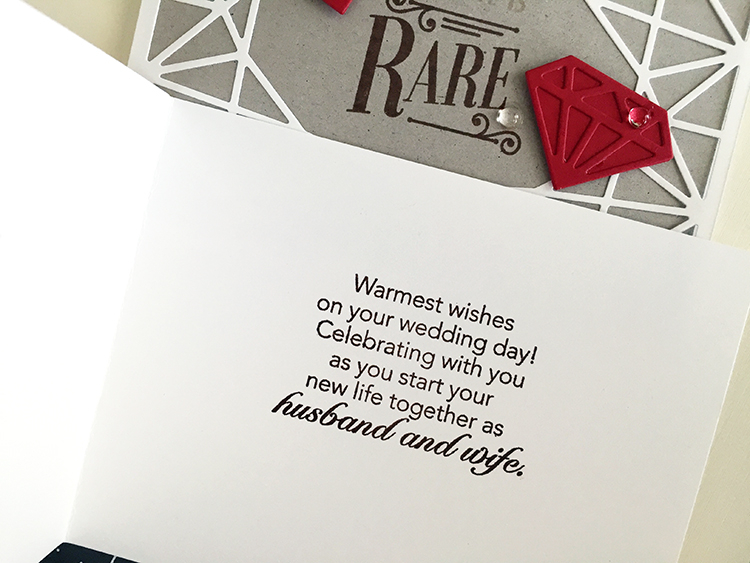 RARE
Warmest wishes
on your wedding day!
Celebrating with you
as you start your
new life together as
husband and wife.